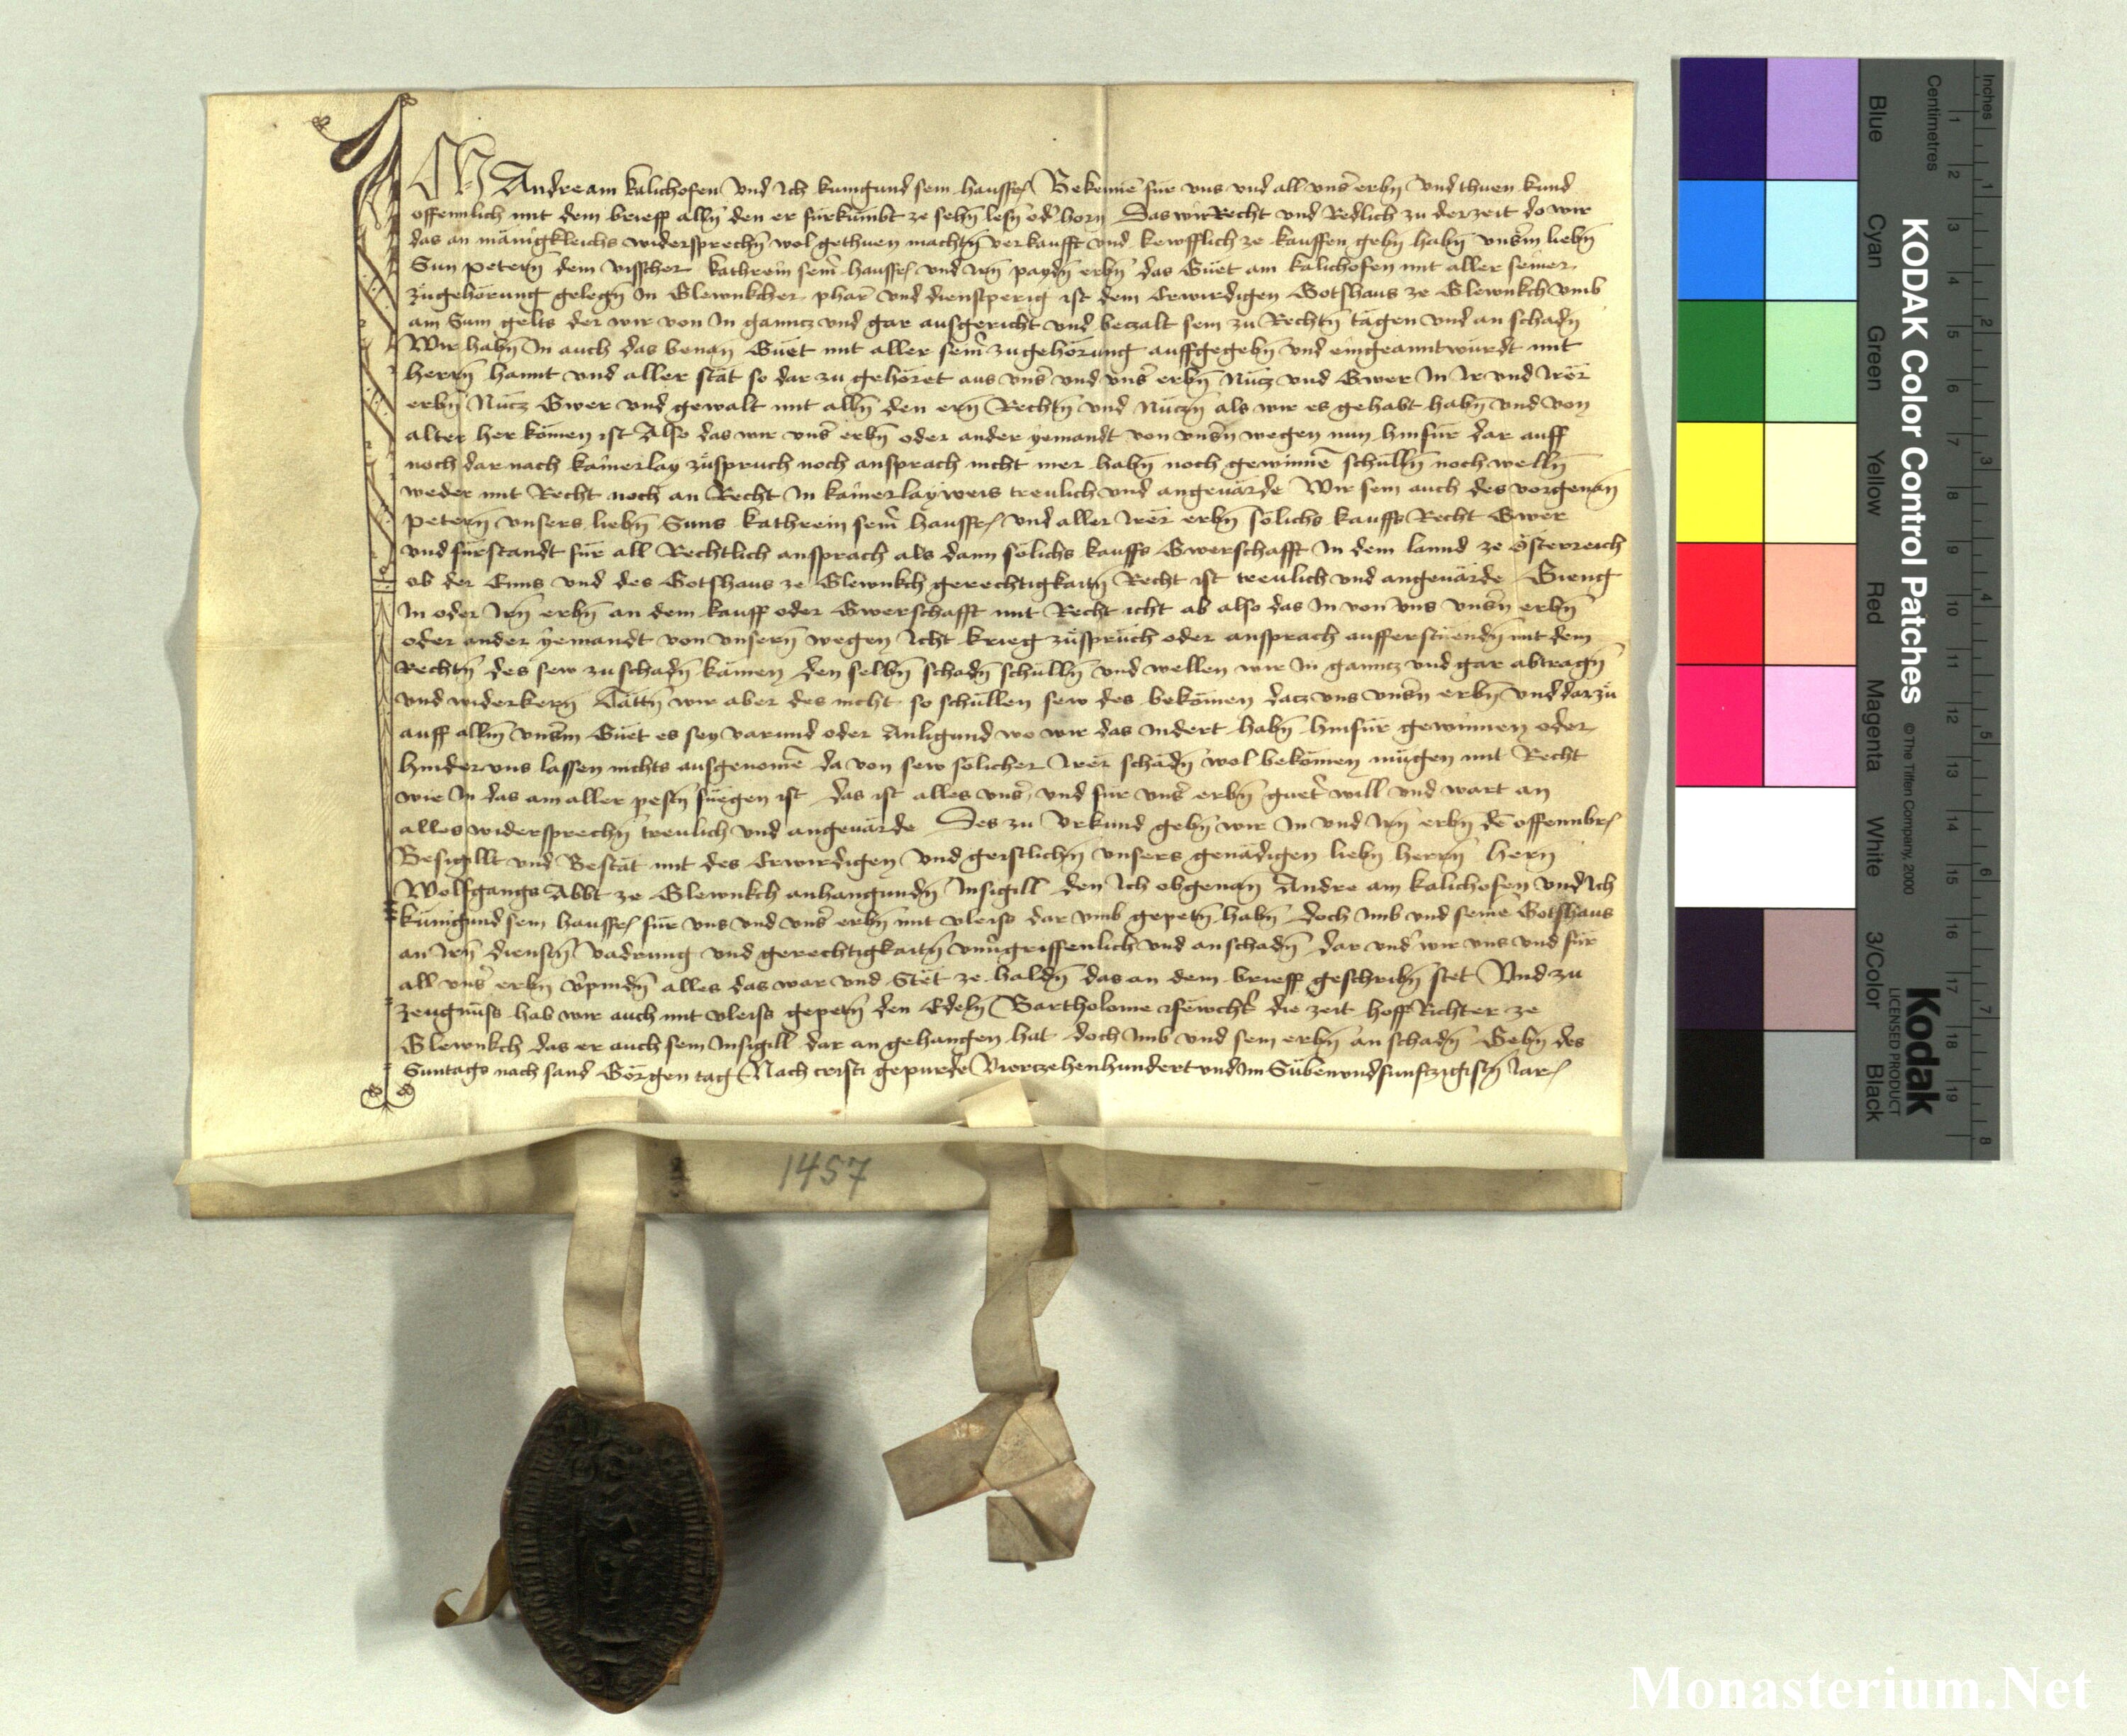 ICH Andre am kalichofen vnd Ich kunigund sein hausfr Bekenne fur vns vnd all vnser erbn vnd thuen kund
offennlich mit dem brieff alln den er furkumbt ze sehn lesn oder horn Das wir Recht vnd Redlich zu der zeit do wir
das an mänigkleichs widersprechn wol gethuen machtn verkaufft vnd kewfflich ze kauffen gebn habn vnserm liebn
Sun petern dem vischer kathrein seiner hausfr vnd irn paydn erbn das Guet am kalichofen mit aller seiner
zugehörung gelegn In Glewnkcher pharr vnd dienstperig ist dem Erwirdigen Gotshaus ze Glewnkch vmb
ain Sum gelts der wir von In ganntz vnd gar ausgericht vnd beczalt sein zu Rechtn tägen vnd an schadn
Wir habn In auch das benan Guet mit aller seiner zugehörung auffgegebn vnd eingeanntwurdt mit
herrn hannt vnd aller stät so dar zu gehöret aus vnser vnd vnser erbn Nucz vnd Gwer In Ir vnd Irer
erbn Nucz Gwer vnd gewalt mit alln den ern Rechtn vnd Nuczn als wir es gehabt habn vnd von
alter her komen ist Also das wir vnser erbn oder ander yemandt von vnsern wegen nun hinfur dar auff
noch dar nach kainerlay zuspruch noch ansprach nicht mer habn noch gewinne schulln noch welln
weder mit Recht noch an Recht In kainerlay weis treulich vnd angeuärde Wir sein auch des vorgenan
petern vnsers liebn Suns kathrein seiner hausfr vnd aller Irer erbn solichs kauffs Recht Gwer
vnd furstandt fur all Rechtlich ansprach als dann solichs kauffs Gwerschafft In dem lannd ze Österreich
ob der Enns vnd des Gotshaus ze Glewnkch gerechtigkaitn Recht ist treulich vnd angeuärde Gieng
In oder Irn erbn an dem kauff oder Gwerschafft mit Recht icht ab also das In von vns vnsern erbn
oder ander yemandt von vnsern wegen Icht krieg zuspruch oder ansprach aufferstuendn mit dem
Rechtn des sew zu schadn kämen den selbn schadn schulln vnd wellen wir In ganntz vnd gar abtragn
vnd widerkern Tättn wir aber des nicht so schullen sew des bekömen dacz vns vnsern erbn vnd darzu
auff allm vnserm Guet es sey varund oder Anligund wo wir das Indert habn hinfur gewinnen oder
hinder vns lassen nichts ausgenome da von sew solicher Irer schädn wol bekömen mugen mit Recht
wie In das am aller pestn fuegen ist das ist alles vnser vnd fur vnser erbn guetr will vnd wart an
alles widersprechn treulich vnd angeuärde Des zu vrkund gebn wir In vnd Irn erbn de offennbr
Besigillt vnd Bestät mit des Erwirdigen vnd geistlichn vnsers genädigen liebn herrn hern
Wolfgangs Abbt ze Glewnkch anhangundn Insigill den Ich obgenan Andre am kalichofen vnd Ich
kunigund sein hausfr fur vns vnd vnser erbn mit vleiss dar vmb gepetn habn doch Imb vnd seine Gotshaus
an Irn dienstn vadrung vnd gerechtigkaitn vnuergriffenlich vnd an schadn dar vnder wir vns vnd fur
all vnser erbn verpindn alles das war vnd Stët ze haldn das an dem brieff geschribn stet Vnd zu
zeugnuss hab wir auch mit vleiss gepetn den Edeln Bartholome die zeit hoff Richter ze
Glewnkch das er auch sein Insigill dar an gehangen hat doch Imb vnd sein erbn an schadn Gebn des
Suntags nach sand Görgen tag Nach cristi gepurde Vierczehenhundert vnd Im Subenvndfunfczigistn Jar
1457
KODAK Color Control Patches © The Tiffen Company, 2000
Kodak
LICENSED PRODUCT
Inches 1 2 3 4 5 6 7 8
Centimetres 1 2 3 4 5 6 7 8 9 10 11 12 13 14 15 16 17 18 19
Blue Cyan Green Yellow Red Magenta White 3/Color Black
Monasterium.Net